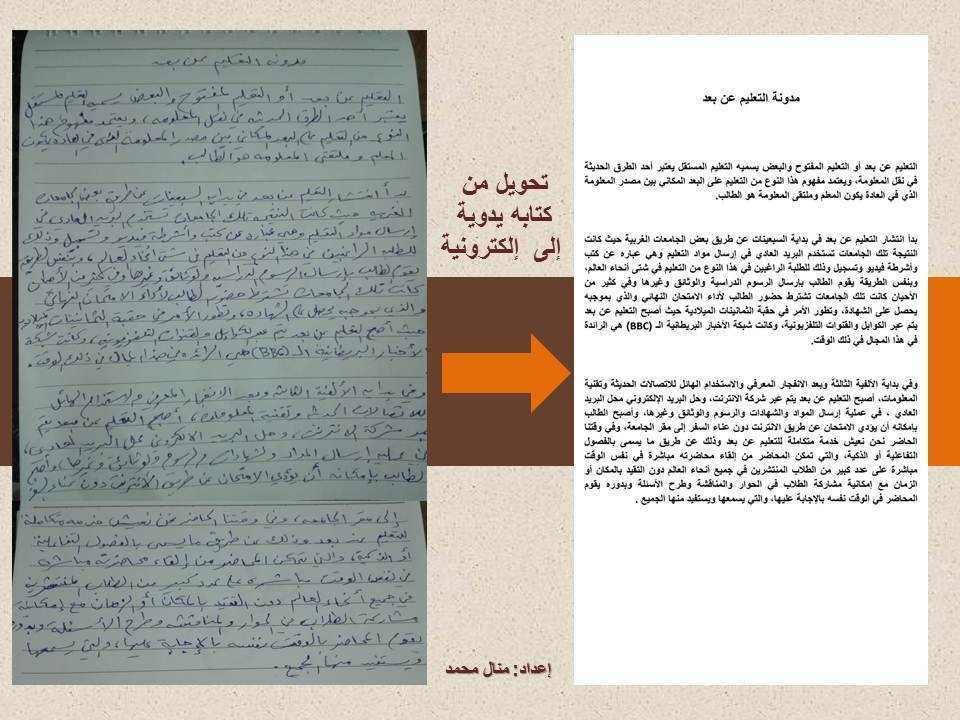 مدونة التعليم عن بعد
التعليم عن بعد أو التعليم المفتوح والبعض يسميه التعليم المستقل يعتبر أحد الطرق الحديثة
في نقل المعلومة، ويعتمد مفهوم هذا النوع من التعليم على البعد المكاني بين مصدر المعلومة
الذي في العادة يكون المعلم وملتقى المعلومة هو الطالب.
بدأ انتشار التعليم عن بعد في بداية السبعينات عن طريق بعض الجامعات الغربية حيث كانت
النتيجة تلك الجامعات تستخدم البريد العادي في إرسال مواد التعليم وهي عبارة عن كتب
وأشرطة فيديو وتسجيل وذلك للطلبة الراغبين في هذا النوع من التعليم في شتى أنحاء العالم،
وبنفس الطريقة يقوم الطالب بإرسال الرسوم الدراسية والوثائق وغيرها وفي كثير من
الأحيان كانت تلك الجامعات تشترط حضور الطالب لأداء الامتحان النهائي والذي بموجبه
يحصل على الشهادة، وتطور الأمر في حقبة الثمانينات الميلادية حيث أصبح التعليم عن بعد
يتم عبر الكوابل والقنوات التلفزيونية، وكانت شبكة الأخبار البريطانية الـ (BBC) هي الرائدة
في هذا المجال في ذلك الوقت.
وفي بداية الألفية الثالثة وبعد الانفجار المعرفي والاستخدام الهائل للاتصالات الحديثة وتقنية
المعلومات، أصبح التعليم عن بعد يتم عبر شركة الانترنت، وحل البريد الإلكتروني محل البريد
العادي ، في عملية إرسال المواد والشهادات والرسوم والوثائق وغيرها، وأصبح الطالب
بإمكانه أن يؤدي الامتحان عن طريق الانترنت دون عناء السفر إلى مقر الجامعة، وفي وقتنا
الحاضر نحن نعيش خدمة متكاملة للتعليم عن بعد وذلك عن طريق ما يسمى بالفصول
التفاعلية أو الذكية، والتي تمكن المحاضر من إلقاء محاضرته مباشرة في نفس الوقت
مباشرة على عدد كبير من الطلاب المنتشرين في جميع أنحاء العالم دون التقيد بالمكان أو
الزمان مع إمكانية مشاركة الطلاب في الحوار والمناقشة وطرح الأسئلة وبدوره يقوم
المحاضر في الوقت نفسه بالإجابة عليها، والتي يسمعها ويستفيد منها الجميع .
تحويل من
كتابه يدوية
إلى إلكترونية
إعداد: منال محمد
مدونه التعليم عن بعد
التعليم عن بعد أو التعليم المفتوح والبعض يسميه التعليم المستقل
يعتبر أحد الطرق الحديثه في نقل المعلومه، ويعتمد مفهوم هذا
النوع من التعليم على البعد المكاني بين مصدر المعلومة الذي في العادة يكون
المعلم وملتقى المعلومه هو الطالب.
بدأ انتشار التعليم عن بعد في بدايه السبعينات عن طريق بعض الجامعات
الغربيه حيث كانت النتيجه تلك الجامعات تستخدم البريد العادي في
إرسال مواد التعليم وهي عباره عن كتب وأشرطة فيديو وتسجيل وذلك
للطلبه الراغبين في هذا النوع من التعليم في شتى أنحاء العالم، وبنفس الطريقه
يقوم الطالب بإرسال الرسوم الدراسيه والوثائق وغيرها وفي كثير من الأحيان
كانت تلك الجامعات تشترط حضور الطالب لأداء الامتحان النهائي
والذي بموجبه يحصل على الشهاده، وتطور الأمر في حقبة الثمانينات الميلاديه
حيث أصبح التعليم عن بعد يتم عبر الكوابل والقنوات التلفزيونيه، وكانت شبكة
الأخبار البريطانية الـ (BBC) هي الرائده في هذا المجال في ذلك الوقت.
وفي بدايه الألفية الثالثه وبعد الانفجار المعرفي والاستخدام الهائل
للاتصالات الحديثه وتقنية المعلومات، أصبح التعليم عن بعد يتم
عبر شركة الانترنت، وحل البريد الالكتروني محل البريد العادي،
في عمليه إرسال المواد والشهادات والرسوم والوثائق وغيرها، وأصبح
الطالب بإمكانه أن يؤدي الامتحان عن طريق الانترنت دون عناء السفر
إلى مقر الجامعه، وفي وقتنا الحاضر نحن نعيش خدمه متكاملة
للتعليم عن بعد وذلك عن طريق ما يسمى بالفصول التفاعلية
أو الذكية، والتي تمكن المحاضر من إلقاء محاضرته مباشره
في نفس الوقت مباشره على عدد كبير من الطلاب المنتشرين
في جميع أنحاء العالم دون التقيد بالمكان أو الزمان مع إمكانية
مشاركة الطلاب في الحوار والمناقشه وطرح الأسئلة وبدوره
يقوم المحاضر بالوقت نفسه بالإجابة عليها، والتي يسمعها
ويستفيد منها الجميع.